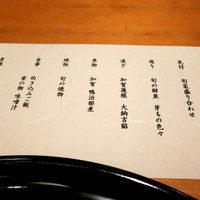 先付 旬菜盛り合わせ
造り 旬の鮮魚 芽もの色々
凌ぎ 加賀蓮根 大納言餡
煮物 加賀 鴨治部煮
焼物 旬の焼物
食事 炊き込みご飯
香の物 味噌汁